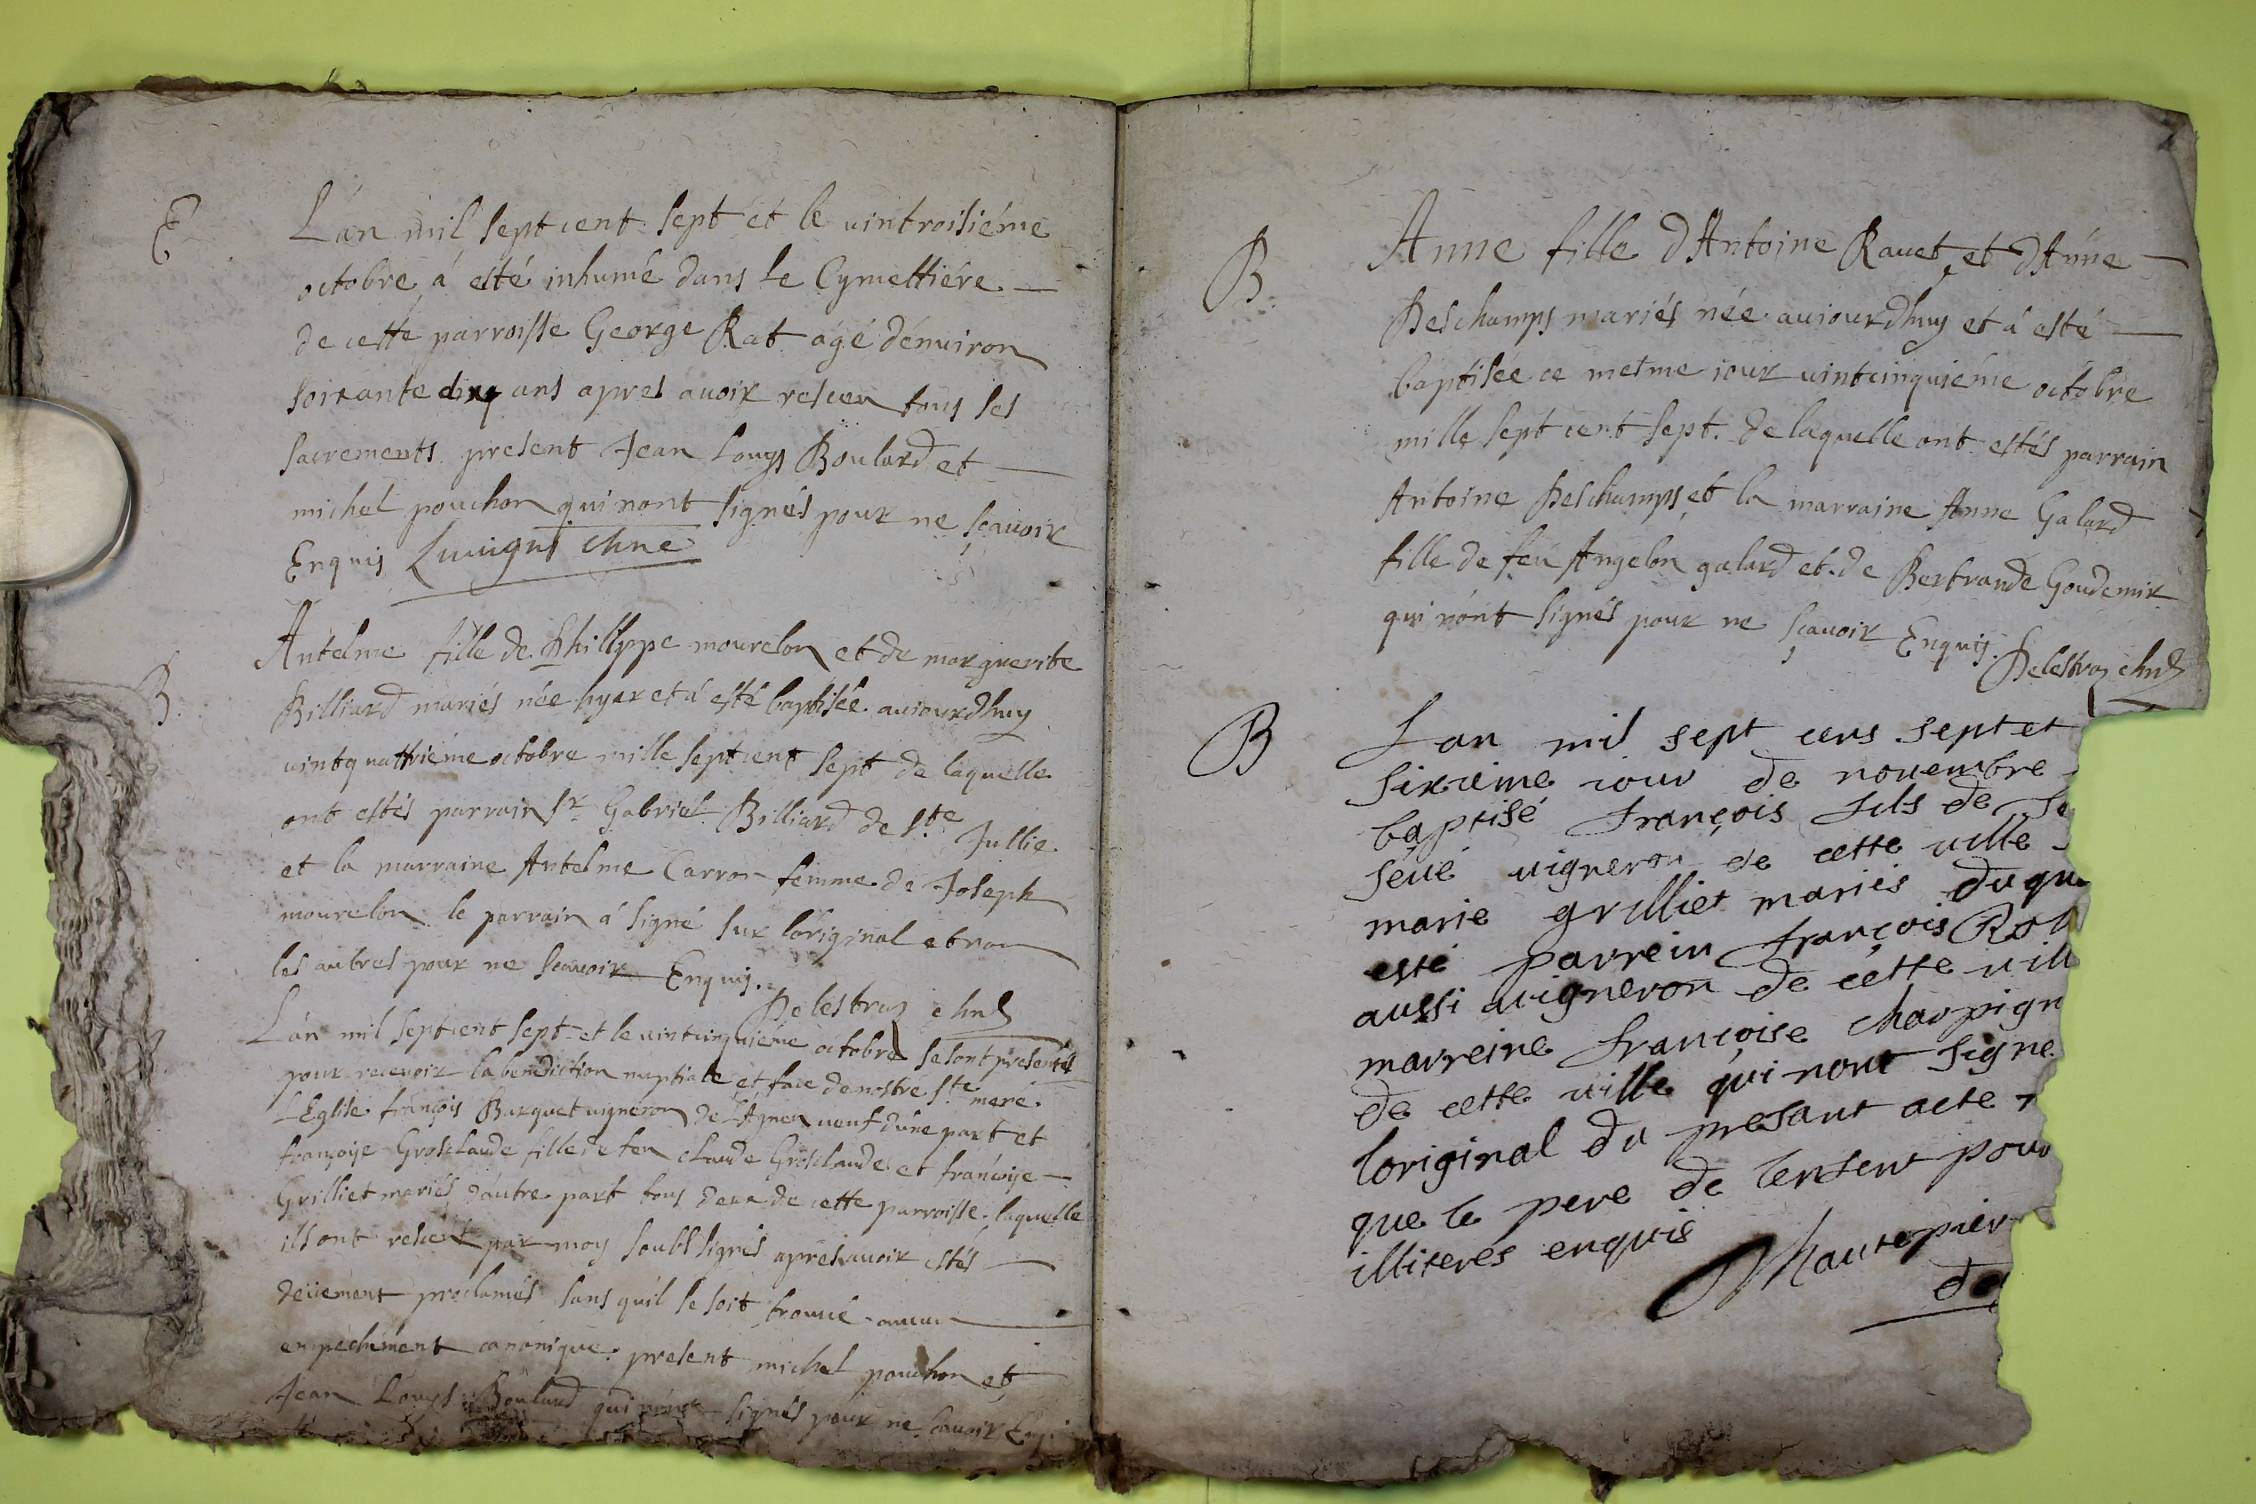 E
L'an mil sept cent sept et le vintroisiéme
octobre á esté inhumé dans le Cymettiére
de cette parroisse George Rat agé démuiron
soixante dix ans apres auoir receu tous ses
sacrements present Jean Louys Boulard et
michel pouchon qui nont signés pour ne sçauoir
Enquis
B.
Antelme fille de Phillippe mourelon et de marguerite
Billiard mariés née hyer et á esté baptisée auiourdhuy
uintquattriéme octobre mille sept cent sept de laquelle
ont estés parrain Sr Gabriel Billiard de Ste Jullie
et la marraine Antelme Carron femme de Joseph
mourelon le parrain á signé sur l'original et non
les autres pour ne sçauoir Enquis.
Delestraz
L'an mil sept cent sept et le uintcinquiéme octobre se sont presentés
pour receuoir la benediction nuptiale et face de nostre Ste mere
L'Eglise françois Burquet uigneron de ueuf d'une part et
françoise Grosclaude fille de feu claude Grosclaude et françoise
Grilliet mariés d'autre part tous deux de cette parroisse laquelle
ils ont par moy soubsignés apres auoir estés
deüement proclamés sans qu'il se soit trouué aucun
empechement canonique present michel pouchon et
Jean Louys Boulard qui n'ont signés pour ne sçauoir
B.
Anne fille d'Antoine Rauet et d'Anne
Deschamps mariés née auiourdhuy et á esté
baptisée ce mesme iour uintcinquiéme octobre
mille sept cent sept. de laquelle ont estés parrain
Antoine Deschamps et la marraine Anne Galard
fille de feu Angelon galard et de Bertrande Goudemir
qui n'ont signés pour ne sçauoir Enquis.
Delestraz
B
Lan mil sept cens sept et
sixieme iour de nouembre
baptisé françois fils de
seué uigneron de cette uille
marie grilliet mariés du qu
esté parrein françois Rol
aussi uigneron de cette uill
marreine françoise charpign
de cette uille qui nont signe
loriginal du presant acte
que le pere de lensent pour
illiterés enquis
Mautepier
de